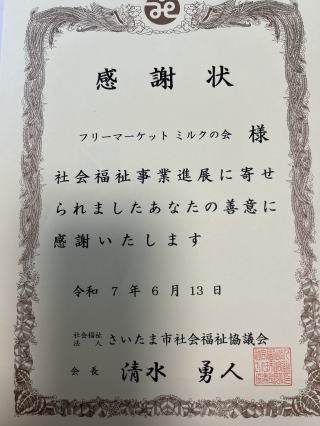 感謝状
フリーマーケット ミルクの会 様
社会福祉事業進展に寄せ
られましたあなたの善意に
感謝いたします
令和 7 年 6 月 13 日
社会福祉法人 さいたま市社会福祉協議会
会長 清水 勇人